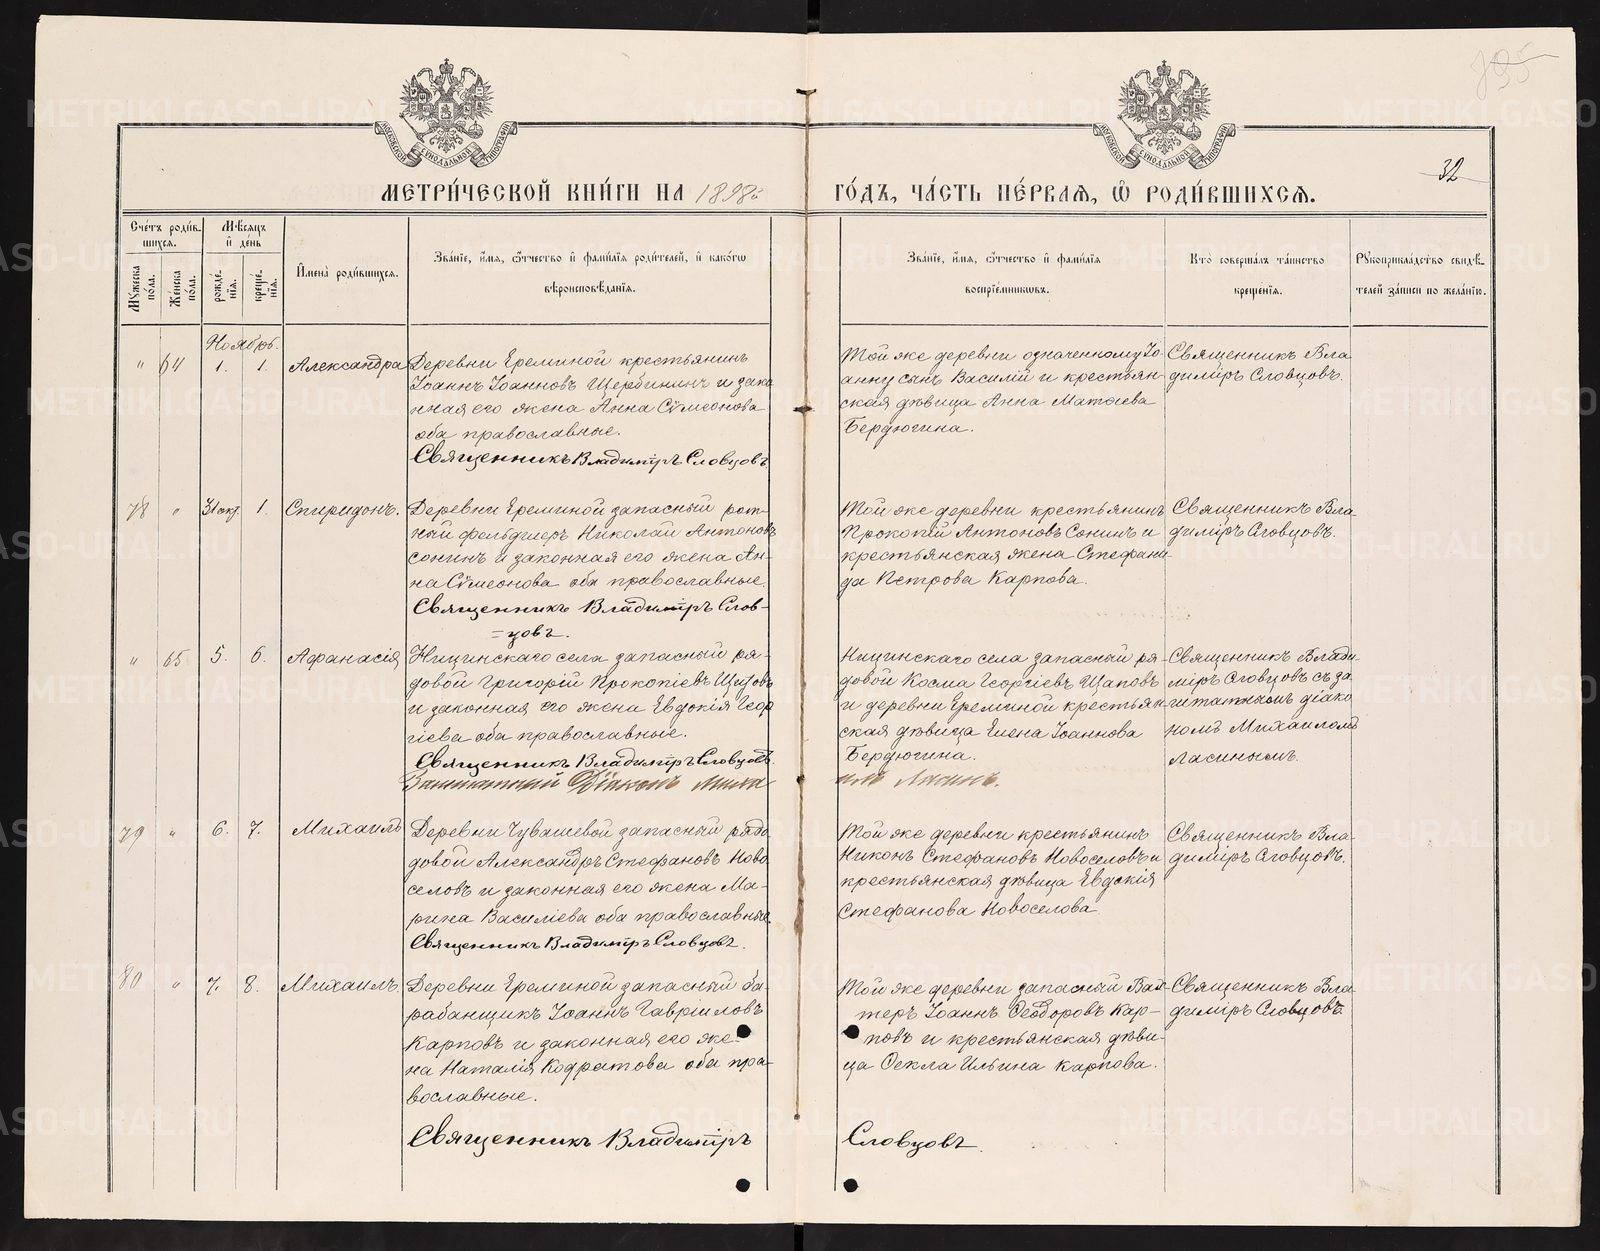 МОСКОВСКОЙ СѴНОДАЛЬНОЙ ТИПОГРАФІИ
МОСКОВСКОЙ СѴНОДАЛЬНОЙ ТИПОГРАФІИ
32
МЕТРИ́ЧЕСКОЙ КНИ́ГИ НА 1898й
ГО́ДЪ, ЧА́СТЬ ПЕ́РВАЯ, Ѽ РОДИ́ВШИХСЯ.
Сче́тъ роди́в-
шихся.
Мѣ́сяцъ
и҆ де́нь
Мꙋ́жеска по́ла.
Же́нска по́ла.
рожде́-нїя.
креще́-нїя.
И҆мена̀ роди́вшихся.
Зва́нїе, и҆́мя, ѻ҆́тчество и҆ фами́лїя роди́телей, и҆ како́гѡ
вѣроисповѣ́данїя.
Зва́нїе, и҆́мя, ѻ҆́тчество и҆ фами́лїя
воспрїе́мникѡвъ.
Кто̀ соверша́лъ та́инство
креще́нїя.
Рꙋкоприкла́дство свидѣ́-
телей за́писи по жела́нїю.
Ноябрь.
" 64 1. 1. Александра
Деревни Ереминой крестьянинъ
Іоаннъ Іоанновъ Щербининъ и зако
нная его жена Анна Сѵмеонова
оба православные.
Священникъ Владиміръ Словцовъ
Той же деревни означенному Іо
анну сынъ Василій и крестьян-
ская дѣвица Анна Матѳіева
Бердюгина.
Священникъ Вла
диміръ Словцовъ.
78 " 31 окт. 1. Спиридонъ.
Деревни Ереминой запасный рот-
ный фельдшеръ Николай Антоновъ
Сонинъ и законная его жена Ан-
на Сѵмеонова оба православные
Священникъ Владиміръ Слов-
=цовъ.
Той же деревни крестьянинъ
Прокопій Антоновъ Сонинъ и
крестьянская жена Стефани
да Петрова Карпова.
Священникъ Вла-
диміръ Словцовъ.
" 65 5. 6. Афанасія
Ницинскаго села запасный ря-
довой Григорій Прокопіевъ
и законная его жена Евдокія Геор
гіева оба православные.
Священникъ Владиміръ Словцовъ.
Заштатный Діаконъ Миха
Ницинскаго села запасный ря-
довой Косма Георгіевъ Щаповъ
и деревни Ереминой крестьян
ская дѣвица Елена Іоаннова
Бердюгина.
илъ Ласинъ.
Священникъ Влади-
міръ Словцовъ съ за
штатнымъ діако
номъ Михаиломъ
Ласинымъ.
79 " 6. 7. Михаилъ
Деревни Чувашевой запасный рядо
довой Александръ Стефановъ Ново
селовъ и законная его жена Ма-
рина Василіева оба православные
Священникъ Владиміръ Словцовъ.
Той же деревни крестьянинъ
Никонъ Стефановъ Новоселовъ и
крестьянская дѣвица Евдокія
Стефанова Новоселова
Священникъ Вла-
диміръ Словцовъ.
80 " 7. 8. Михаилъ
Деревни Ереминой запасный ба-
рабанщикъ Іоаннъ Гавріиловъ
Карповъ и законная его же-
на Наталія Кодратова оба пра-
вославные.
Священникъ Владиміръ
Той же деревни запасный
Іоаннъ Ѳеодоровъ Кар-
повъ и крестьянская дѣви-
ца Ѳекла Ильина Карпова.
Словцовъ.
Священникъ Вла-
диміръ Словцовъ
METRIKI.GASO-URAL.RU